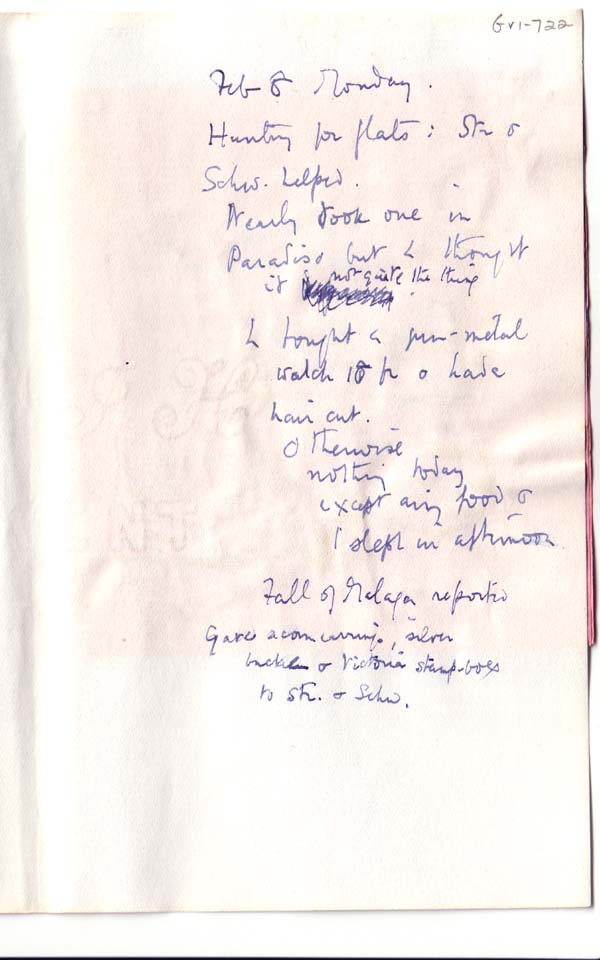 GV1-722
Feb 8 Monday.
Hunting for flats: Str &
Schw. helped.
Nearly took one in
Paradiso but L thought
it not quite the thing
L bought a gun-metal
watch 18 fr & had a
hair cut.
Otherwise
nothing today
except airy food &
I slept in afternoon
Fall of Malaga reported
Gave acorn earrings, silver
buckle & Victoria stamp-box
to Str. & Schw.